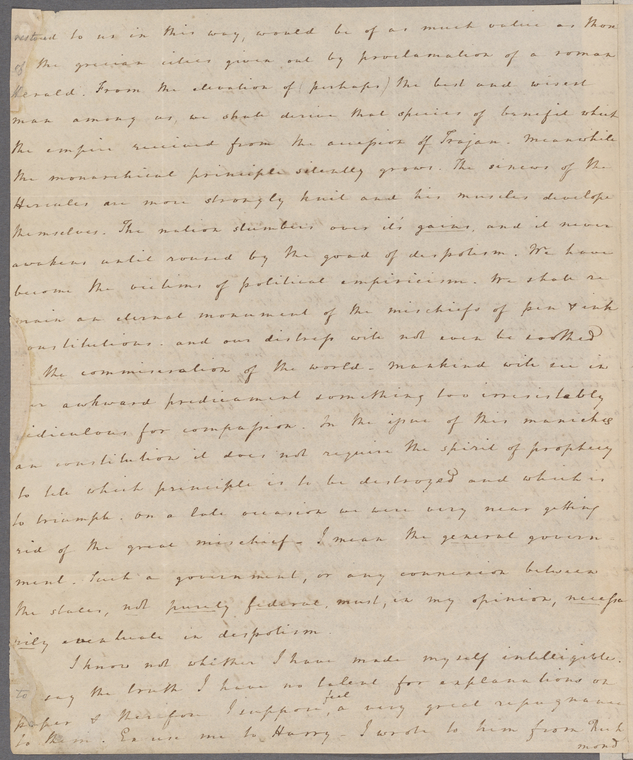 restored to us in this way, would be of as much value as those
of the grecian cities given out by proclamation of a roman
herald. From the elevation of (perhaps) the best and wisest
man among us, we shall derive that species of benefit which
the empire received from the accession of Trajan. Meanwhile
the monarchical principle silently grows. The sinews of the
Hercules are more strongly knit and his muscles develope
themselves. The nation slumbers over it's gains, and it never
awakens until roused by the goad of despotism. We have
become the victims of political empiricism. We shall re
main an eternal monument of the mischiefs of pen & ink
constitutions. and our distress will not even be soothed
the commiseration of the world - mankind will see in
our awkward predicament something too irresistably
ridiculous for compassion. In the issue of this maniche
an constitution it does not require the spirit of prophecy
to tell which principle is to be destroyed and which is
to triumph. On a late occasion we were very near getting
rid of the great mischief - I mean the general govern
ment. Such a government, or any connexion between
the states, not purely federal, must, in my opinion, necessa
rily eventuate in despotism.
I know not whether I have made myself intelligible.
to say the truth I have no talent for explanations on
paper & therefore I suppose, feel a very great repugnance
to them. Excuse me to Harry - I wrote to him from Rich
mond